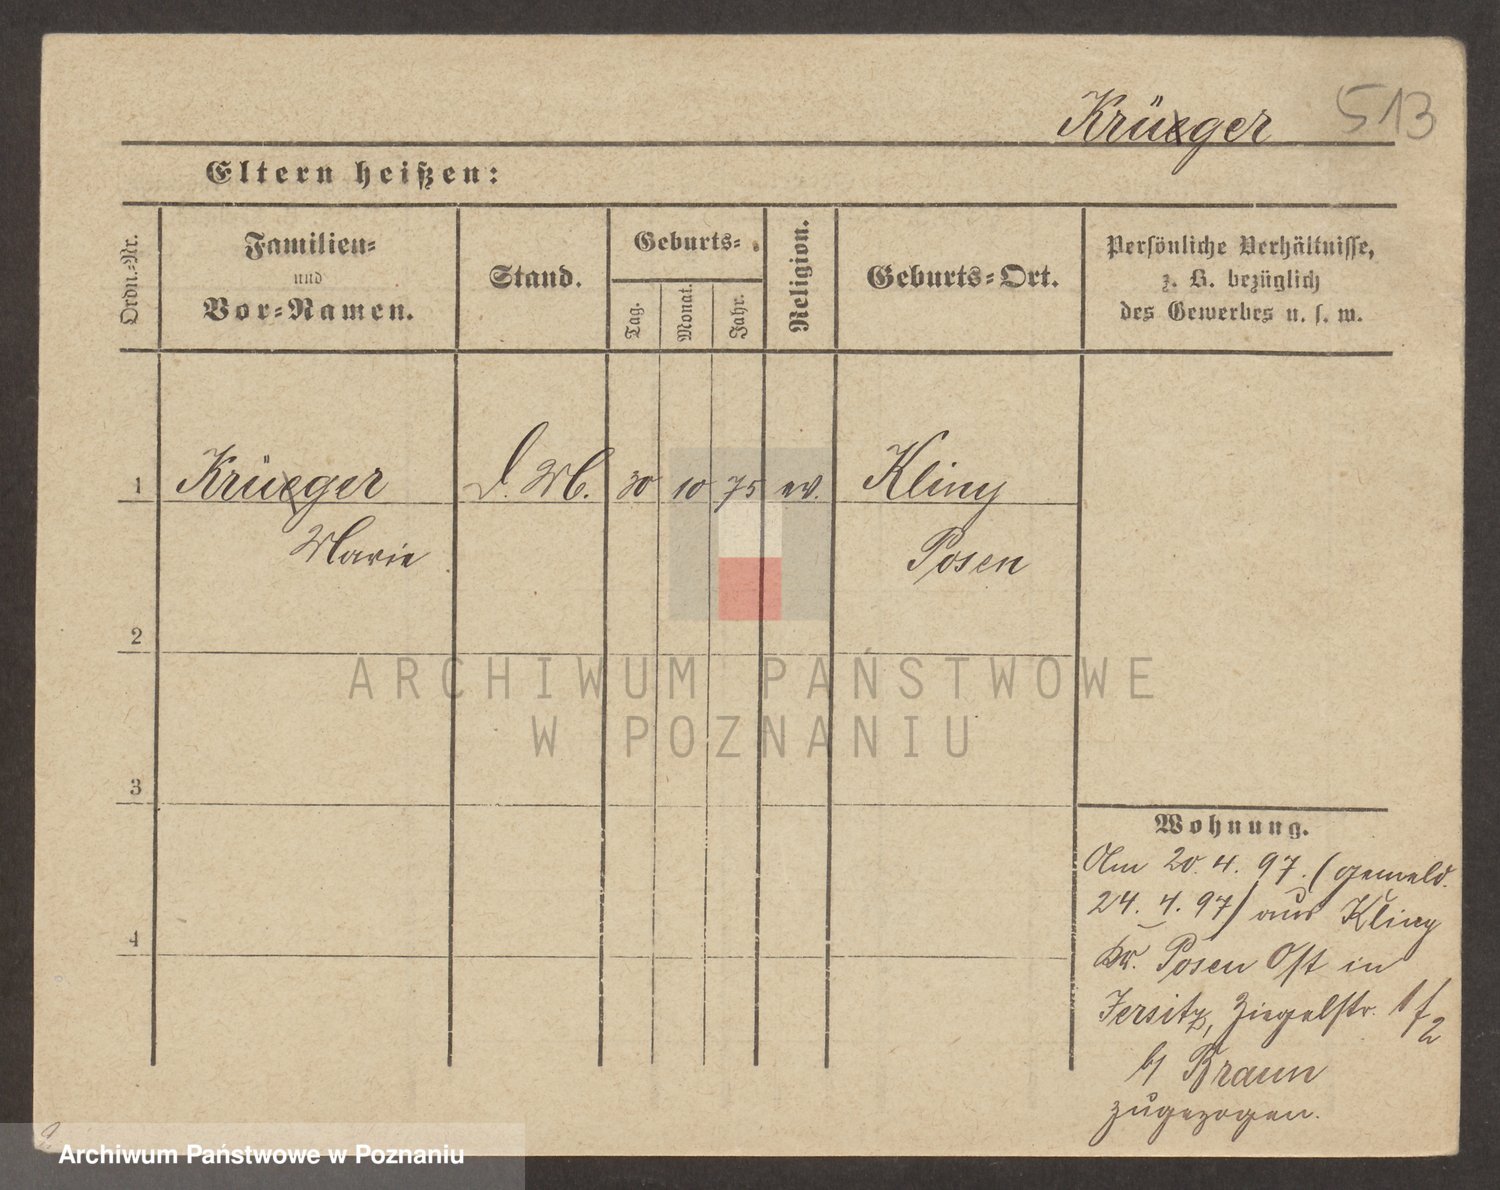 Krüeger 513
Eltern heißen:
Ordn.-Nr.
Familien-
und
Vor-Namen.
Stand.
Geburts-
Tag.
Monat.
Jahr.
Religion.
Geburts-Ort.
Persönliche Verhältnisse,
z. B. bezüglich
des Gewerbes u. s. w.
1 Krüeger D. M. 30 10 75 ev. Kliny
Marie Posen
2
3
4
ARCHIWUM PAŃSTWOWE
W POZNANIU
Wohnung.
Am 20. 4. 97. (gemeld.
24. 4. 97) aus Kliny
Kr. Posen Ost in
Jersitz, Ziegelstr.
b/ Braun
zugezogen.
Archiwum Państwowe w Poznaniu